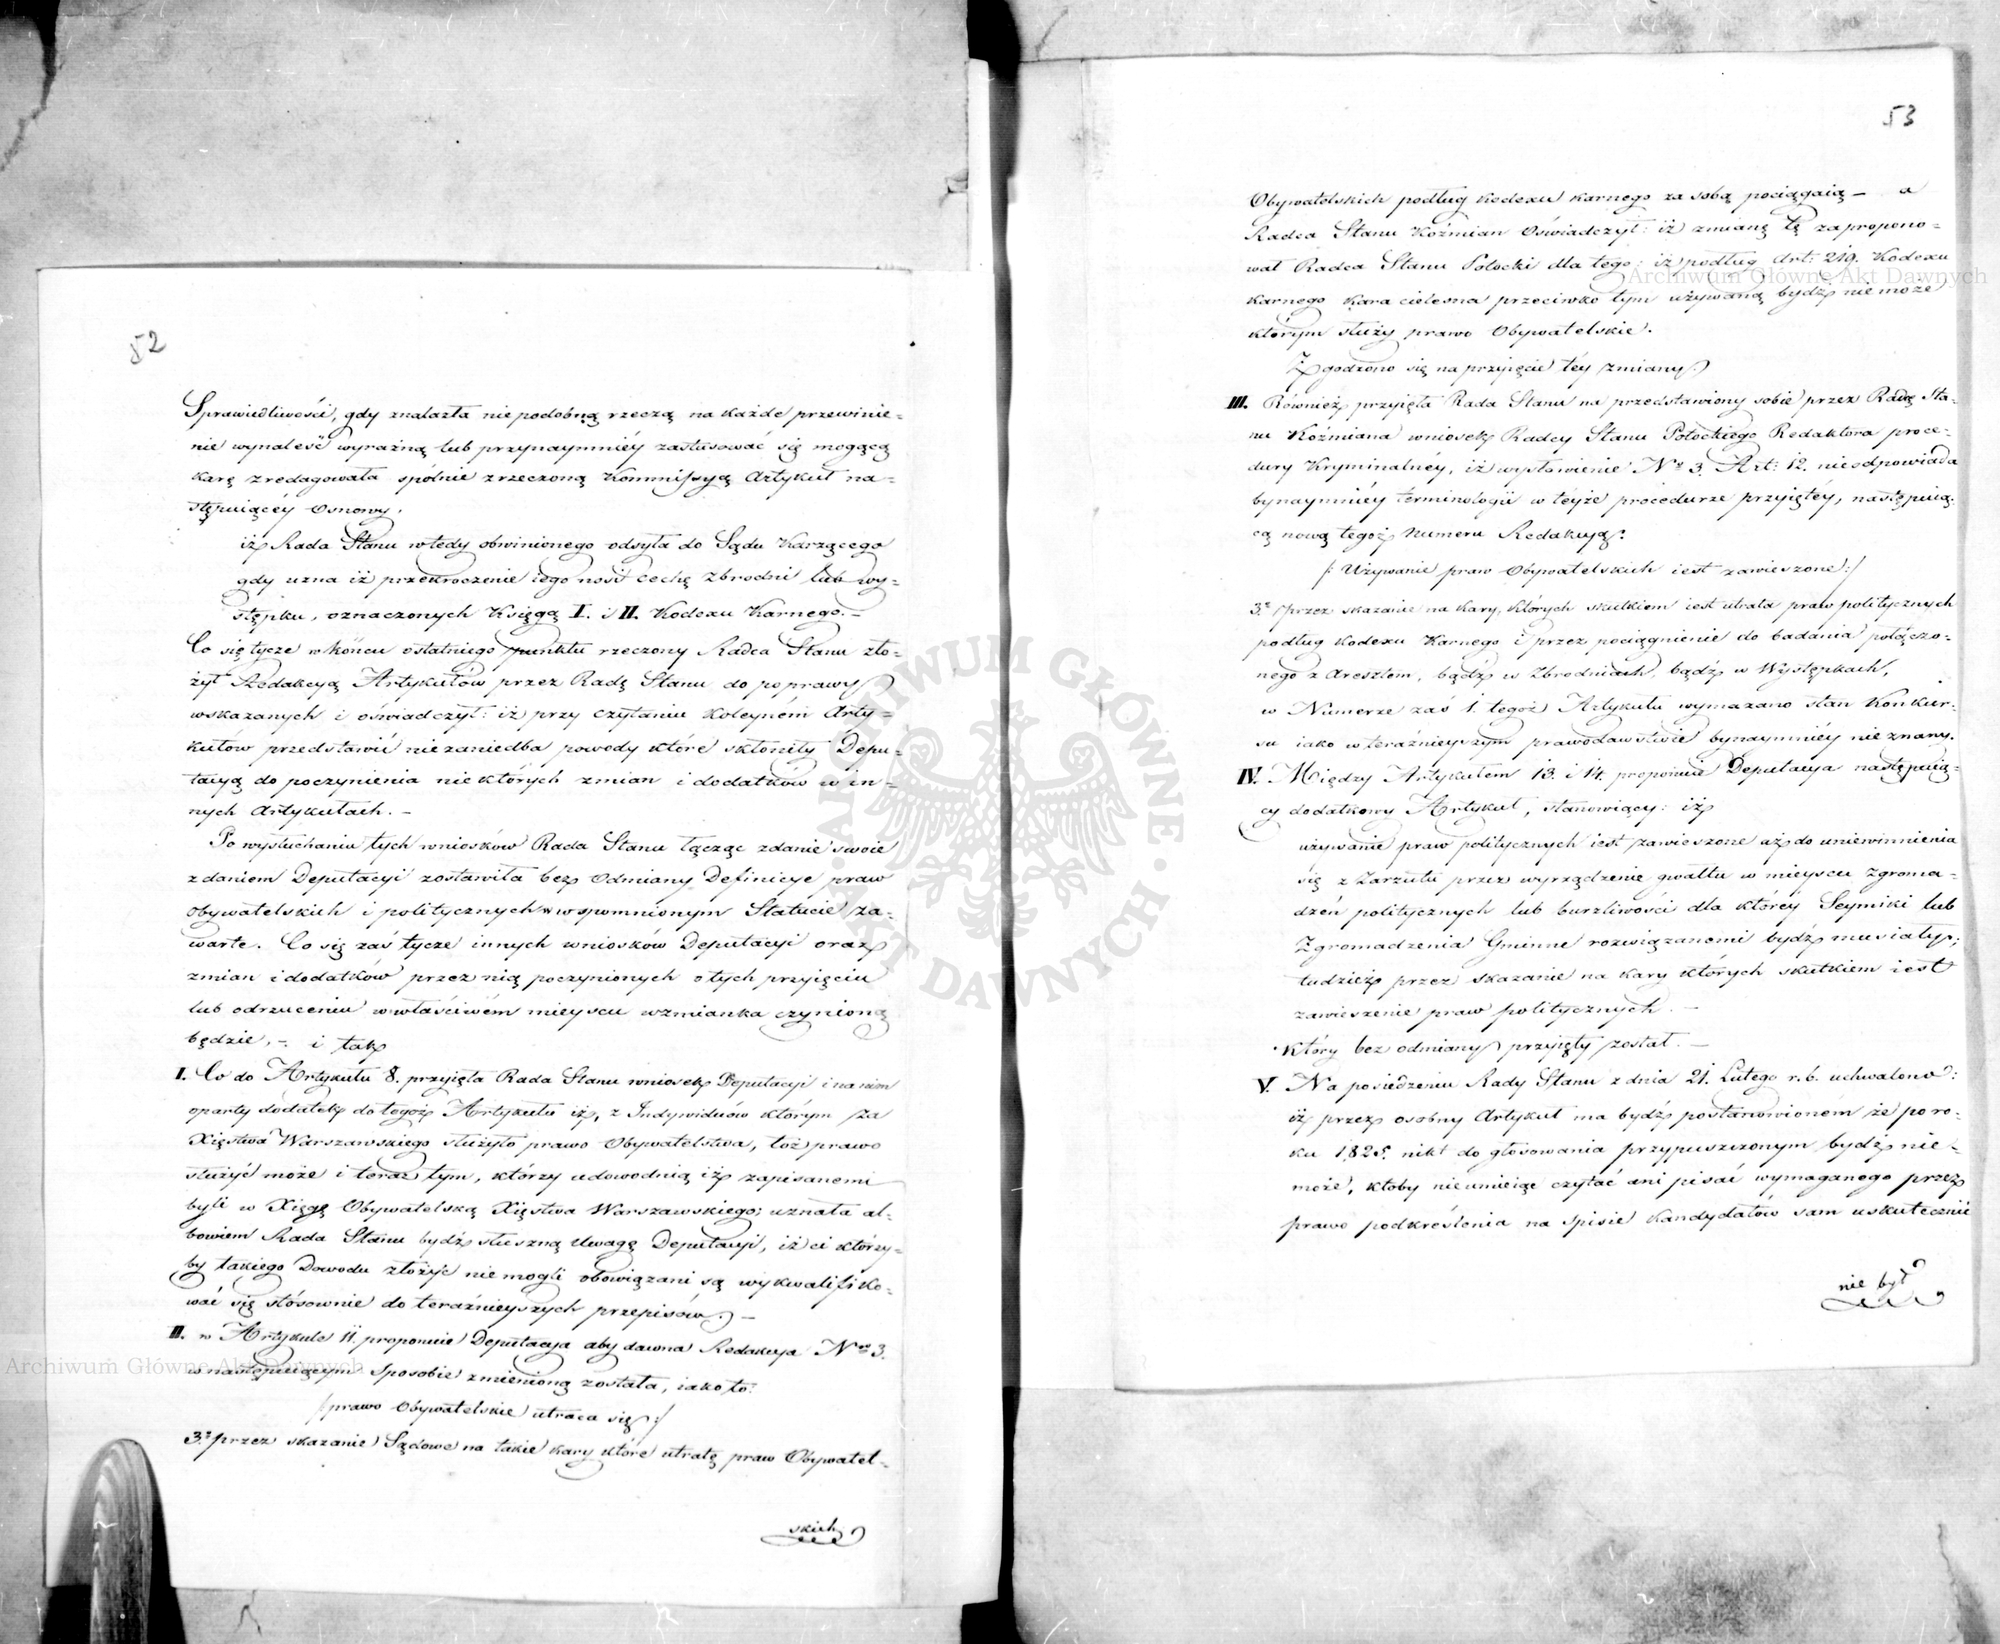 52
Sprawiedliwości, gdy znalazła niepodobną rzeczą na każde przewinie-
nie wynaleść wyraźną lub przynaymniéy zastusować się mogącą
karę zredagowała spólnie z rzeczoną Kommissyą Artykuł na-
stępuiącéy osnowy.
iż Rada Stanu wtedy obwinionego odsyła do Sądu Karzącego
gdy uzna iż przekroczenie iego nosi cechę zbrodni lub wy-
stępku, oznaczonych Księgą I. i II. Kodexu Karnego.-
Co się tycze w końcu ostatniego punktu rzeczony Radca Stanu zło-
żył Redakcyą Artykułów przez Radę Stanu do poprawy
wskazanych i oświadczył: iż przy czytaniu koleyném Arty-
kułów przedstawić niezaniedba powody które skłoniły Depu-
tacyą do poczynienia niektórych zmian i dodatków w in-
nych Artykułach.-
Po wysłuchaniu tych wniosków Rada Stanu łącząc zdanie swoie
z daniem Deputacyi zostawiła bez odmiany Definicye praw
obywatelskich i politycznych w wspomnionym Statucie za-
warte. Co się zaś tycze innych wniosków Deputacyi oraz
zmian i dodatków przez nią poczynionych o tych przyięciu
lub odrzuceniu w właściwém mieyscu wzmianka czynioną
będzie,-. i tak
I. Co do Artykułu 8. przyięła Rada Stanu wniosek Deputacyi i na nim
oparty dodatek do tegoż Artykułu iż, z Indywiduów którym za
Xięstwa Warszawskiego służyło prawo Obywatelstwa, toż prawo
służyć może i teraz tym, którzy udowodnią iż zapisanemi
byli w Xięgę Obywatelską Xięstwa Warszawskiego; uznała al-
bowiem Rada Stanu bydź słuszną uwagę Deputacyi, iż ci którzy-
by takiego Dowodu złożyć niemogli obowiązani są wykwalifiko-
wać się stósownie do teraźnieyszych przepisów.-
II. w Artykule 11. proponuie Deputacya aby dawna Redakcya Nro 3.
w następuiącym sposobie zmienioną została, iako to:
/: prawo Obywatelskie utraca się :/
3. przez skazanie Sądowe na takie kary które utratę praw Obywatel-
skich
53
Obywatelskich podług Kodexu karnego za sobą pociągaią - a
Radca Stanu Koźmian Oświadczył: iż zmianę tę zapropono-
wał Radca Stanu Potocki dla tego: iż podług Art: 219. Kodexu
karnego kara cielesna przeciwko tym używaną bydź niemoże
którym służy prawo Obywatelskie.
Zgodzono się na przyięcie téy zmiany.
III. Również przyięła Rada Stanu na przedstawiony sobie przez Radcę Sta-
nu Koźmiana wniosek Radcy Stanu Potockiego Redaktora proce-
dury Kryminalnéy, iż wysłowienie Nro 3. Art: 12. nieodpowiada
bynaymniéy terminologii w téyże procedurze przyiętéy, następuią-
cą nową tegoż Numeru Redakcyą:
/: Używanie praw Obywatelskich iest zawieszone :/
3. przez skazanie na kary, których skutkiem iest utrata praw politycznych
podług Kodexu Karnego i przez pociągnienie do badania połączo-
nego z Aresztem, bądź w Zbrodniach, bądź w Występkach,
w Numerze zaś 1. tegoż Artykułu wymazano stan Konkur-
su iako w teraźnieyszym prawodawstwie bynaymniéy nieznany.
IV. Między Artykułem 13. i 14. proponuie Deputacya następuią-
cy dodatkowy Artykuł, stanowiący: iż
używanie praw politycznych iest zawieszone aż do uniewinnienia
się z Zarzutu przez wyrządzenie gwałtu w mieyscu Zgroma-
dzeń politycznych lub burzliwości dla któréy Seymiki lub
Zgromadzenia Gminne rozwiązanemi bydź musiały;
tudzież przez skazanie na kary których skutkiem iest
zawieszenie praw politycznych.-
Który bez odmiany przyięty został.-
V. Na posiedzeniu Rady Stanu z dnia 21. Lutego r.b. uchwalono:
iż przez osobny Artykuł ma bydź postanowioném że po ro-
ku 1825. nikt do głosowania przypuszczonym bydź nie-
może, ktoby nieumieiąc czytać ani pisać wymaganego przez
prawo podkreślenia na spisie Kandydatów sam uskutecznić
nie był
Archiwum Główne Akt Dawnych
Archiwum Główne Akt Dawnych
ARCHIWUM GŁÓWNE
AKT DAWNYCH